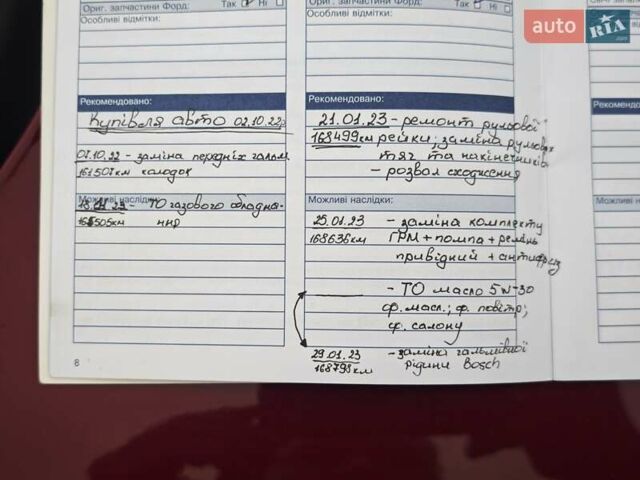 Ориг. запчастини Форд: Так Ні
Особливі відмітки:
Рекомендовано:
Купівля авто 02.10.22р
07.10.22 - заміна передніх гальм.
161507км колодок
Можливі наслідки:
- ТО газового обладна-
ння
8
Ориг. запчастини Форд: Так Ні
Особливі відмітки:
Рекомендовано:
21.01.23 - ремонт рульової
168499км рейки; заміна рульових
тяг та накінечників
- розвал сходження
Можливі наслідки:
25.01.23 - заміна комплекту
168636км ГРМ + помпа + ремінь
привідний + антифриз
- ТО масло 5W-30
ф. масл.; ф. повітр;
ф. салону
29.01.23 - заміна гальмівної
168798км рідини Bosch
Рекомендовано
Можливі
auto RIA
.com